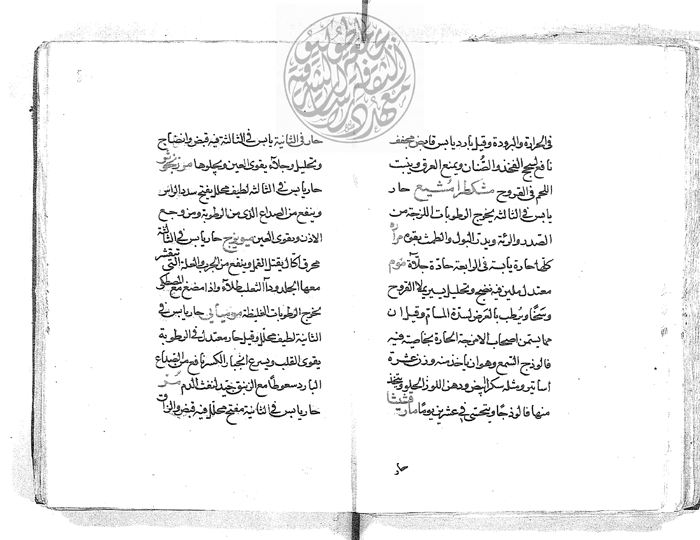 في الحرارة والبرودة وقيل بارد يابس قابض مجفف
نافع لسحج الفخذ والصُّنان ويمنع العرق وينبت
اللحم في القروح مشكطرا مشيع حار
يابس في الثالثة يخرج الرطوبات اللزجة من
الصدر والرئة ويدر البول والطمث بقوة مرارة
كلها حارة يابسة في الرابعة حادة جلاءة موم
معتدل ملين فيه نضج وتحليل يسير يملا القروح
وسخا ويرطب بالعرض لسده المسام وقيل ان
مما يسمن اصحاب الامزجة الحارة بخاصية فيه
فالوذج الشمع وهو ان ياخذ منه وزن عشرة
اساتير ومثله سكر ابيض ودهن اللوز الحلو ويتخذ
منها فالوذجا ويتحسى في عشرين يوما مارقشيثا
حار
حار في الثانية يابس في الثالثة فيه قبض وانضاج
وتحليل وجلاء يقوى العين ويجلوها مرزنجوش
حار يابس في الثالثة لطيف محلل يفتح سدد الراس
وينفع من الصداع الذي من الرطوبة ومن وجع
الاذن ويقوى العين ميويزج حار يابس في الثالثة
محرق اكال يقتل القمل وينفع من الجرب والعلة التي تتقشر
معها الجلد وداء الثعلب طلاء واذا مضغ مع المصطكى
يخرج الرطوبات الغليظة موميايى حار يابس في
الثانية لطيف محلل وقيل حار معتدل في الرطوبة
يقوى القلب ويسرع انجبار الكسر نافع من الصداع
البارد سعوطا مع الزنبق جيد لنفث الدم مر
حار يابس في الثانية مفتح محلل فيه قبض والزاق